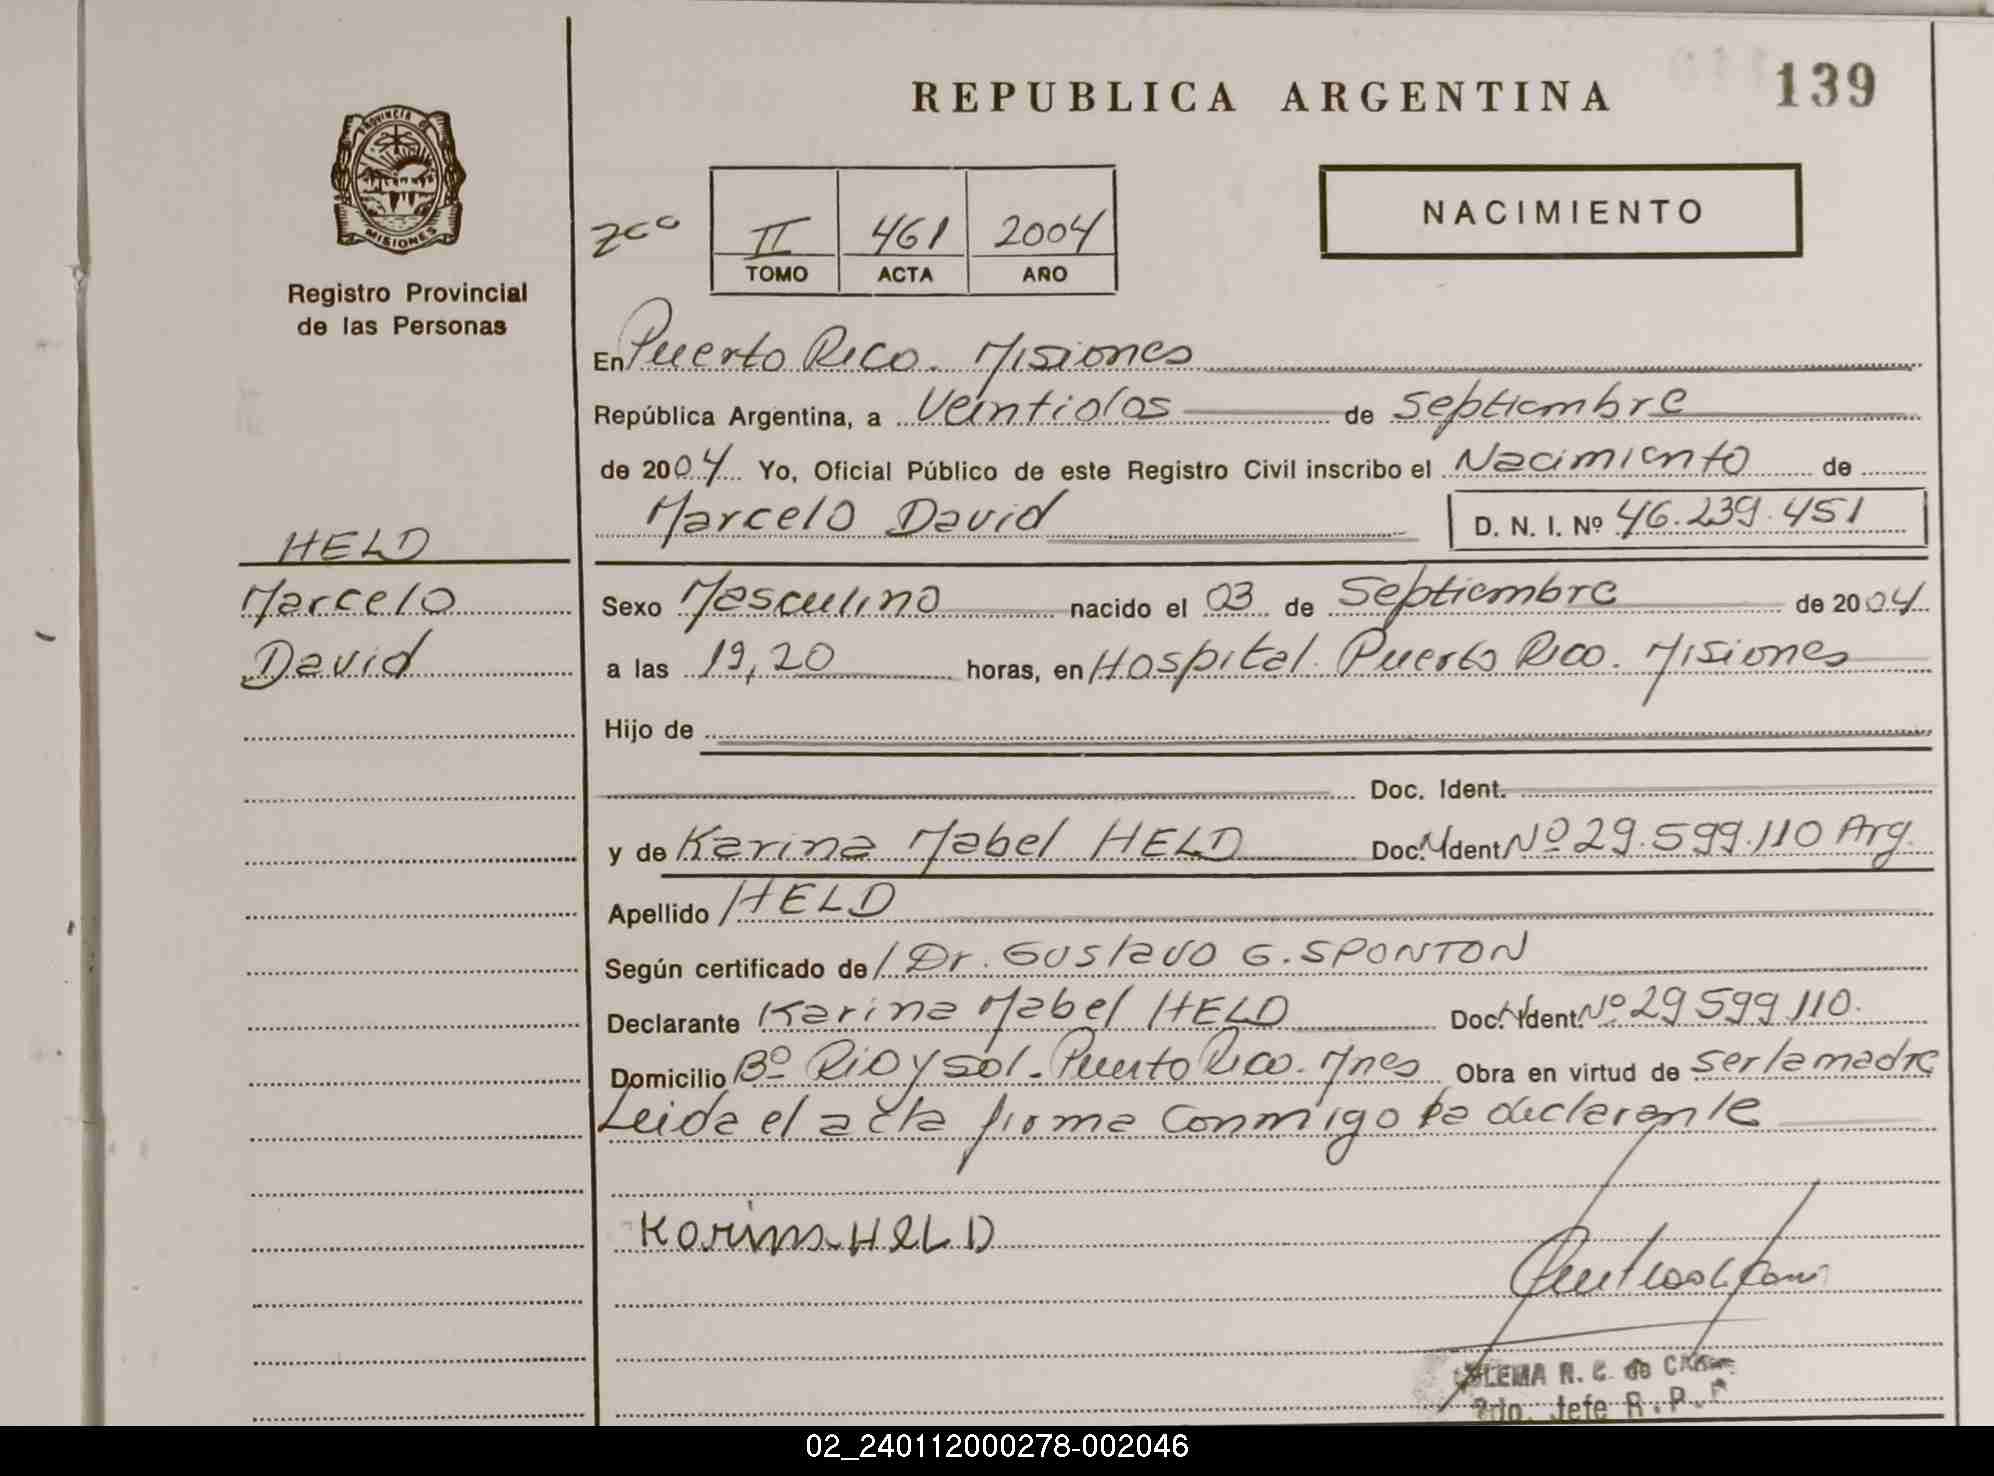 REPUBLICA ARGENTINA
139
PROVINCIA DE
MISIONES
Registro Provincial
de las Personas
II 461 2004
TOMO ACTA AÑO
NACIMIENTO
En Puerto Rico. Misiones
República Argentina, a Veintidos de Septiembre
de 2004 Yo, Oficial Público de este Registro Civil inscribo el Nacimiento de
Marcelo David D. N. I. Nº 46.239.451
HELD
Marcelo
David
Sexo Masculino nacido el 03 de Septiembre de 2004
a las 19,20 horas, en Hospital. Puerto Rico. Misiones
Hijo de
Doc. Ident.
y de Karina Mabel HELD Doc. Ident Nº 29.599.110 Arg.
Apellido HELD
Según certificado de / Dr. Gustavo G. SPONTON
Declarante Karina Mabel HELD Doc. Ident. Nº 29 599 110.
Domicilio Bº Rio y sol. Puerto Rico. Mnes Obra en virtud de ser la madre
Leida el acta firma conmigo la declarante
Karina HELD
R. C. de
2do. Jefe R. P.
02_240112000278-002046